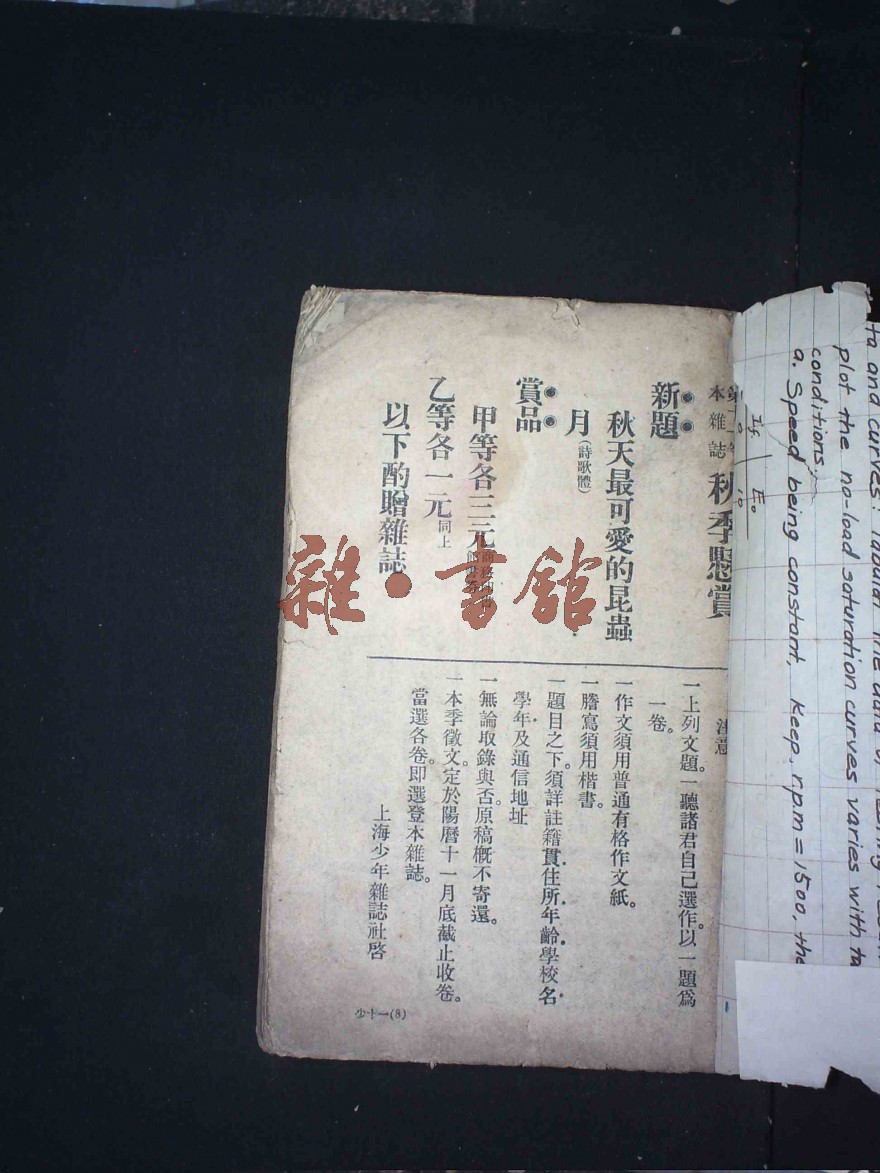 第十一年
本雜誌
秋季懸賞
新題
秋天最可愛的昆蟲
月(詩歌體)
賞品
甲等各三元
乙等各一元同上
以下酌贈雜誌
注意
一上列文題。一聽諸君自己選作。以一題爲
一卷。
一作文須用普通有格作文紙。
一謄寫須用楷書。
一題目之下。須詳註籍貫住所年齡學校名
學年及通信地址
一無論取錄與否。原稿概不寄還。
一本季徵文。定於陽曆十一月底截止收卷。
當選各卷。即選登本雜誌。
上海少年雜誌社啓
少十一(8)
雜·書館
ta and curves: Tabular
plot the no-load saturation curves varies with
conditions.
a. Speed being constant, Keep, rpm=1500, the
If Eo
0 10